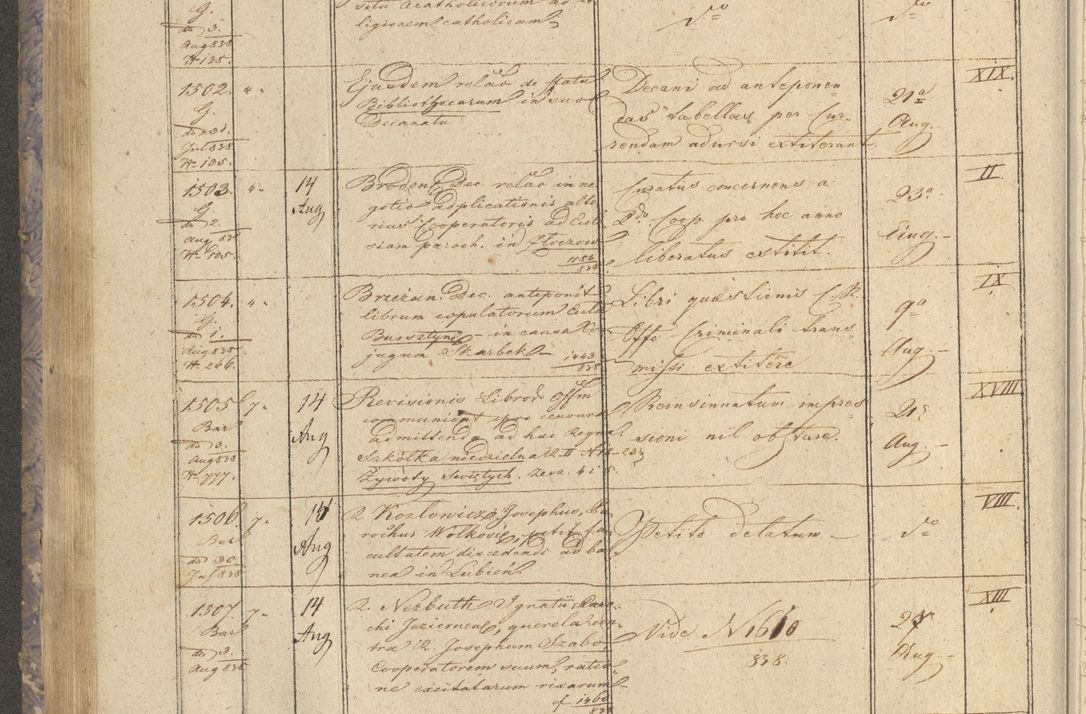 G.
dto 3.
Aug 838
N 135.
ligionem catholicam
dto
dto
1502. "
G.
dto 31.
Jul 838
N 135.
Ejusdem relaõ de statu
Bibliothecarum in suo
Decanatu.
Decani ad anteponen
das tabellas per Cur-
rendam adursi extiterant.
21a
Aug.
XIX.
1503. "
G.
dto 2.
Aug 838
N 135.
14
Aug
Broden. Dec. relaõ in ne
gotio adplicationis alte
rius Cooperatoris ad Eccle
siam paroch. in Złoczow
1184
838
Curatus concernens a
2do Coop pro hoc anno
liberatus extitit.
23a
Aug.
II.
1504. "
G.
dto 1.
Aug 838
N 246.
Brzeżan. Dec. anteponit
librum copulatorum Eccle
Bursztyn in causa Con
jugum Skarbek
1443
838
Libri quaestionis C. R.
Offo Criminali trans
missi extitere
9a
Aug.
IX.
1505. 7.
Bar
dto 3.
Aug 838
N 777.
14
Aug
Revisionis Libror. Offm
communicat pro censura
admittenda ad hac regna
Szkółka niedzielna
Żywoty Świętych. zesz. 4 i 5.
impres
sioni nil obstare.
21a
Aug.
XVIII.
1506. 7.
Bar
dto 30.
Jul 838
14
Aug
R. Kozłowicz Josephus, Pa
rochus petit fa
cultatem discedendi ad ba
nea in Lubień.
Petito delatum
dto
VIII.
1507. 7.
Bar
dto 3.
Aug 838
14
Aug
R. Nerbuth Ignatii, Paro-
chi Jeziernens, querela con
tra R. Josephum Szabo
Cooperatorem suum, ratio
ne excitatarum rixarum
cf. 1460
838
Vide N 1610
838.
Aug.
XIII.